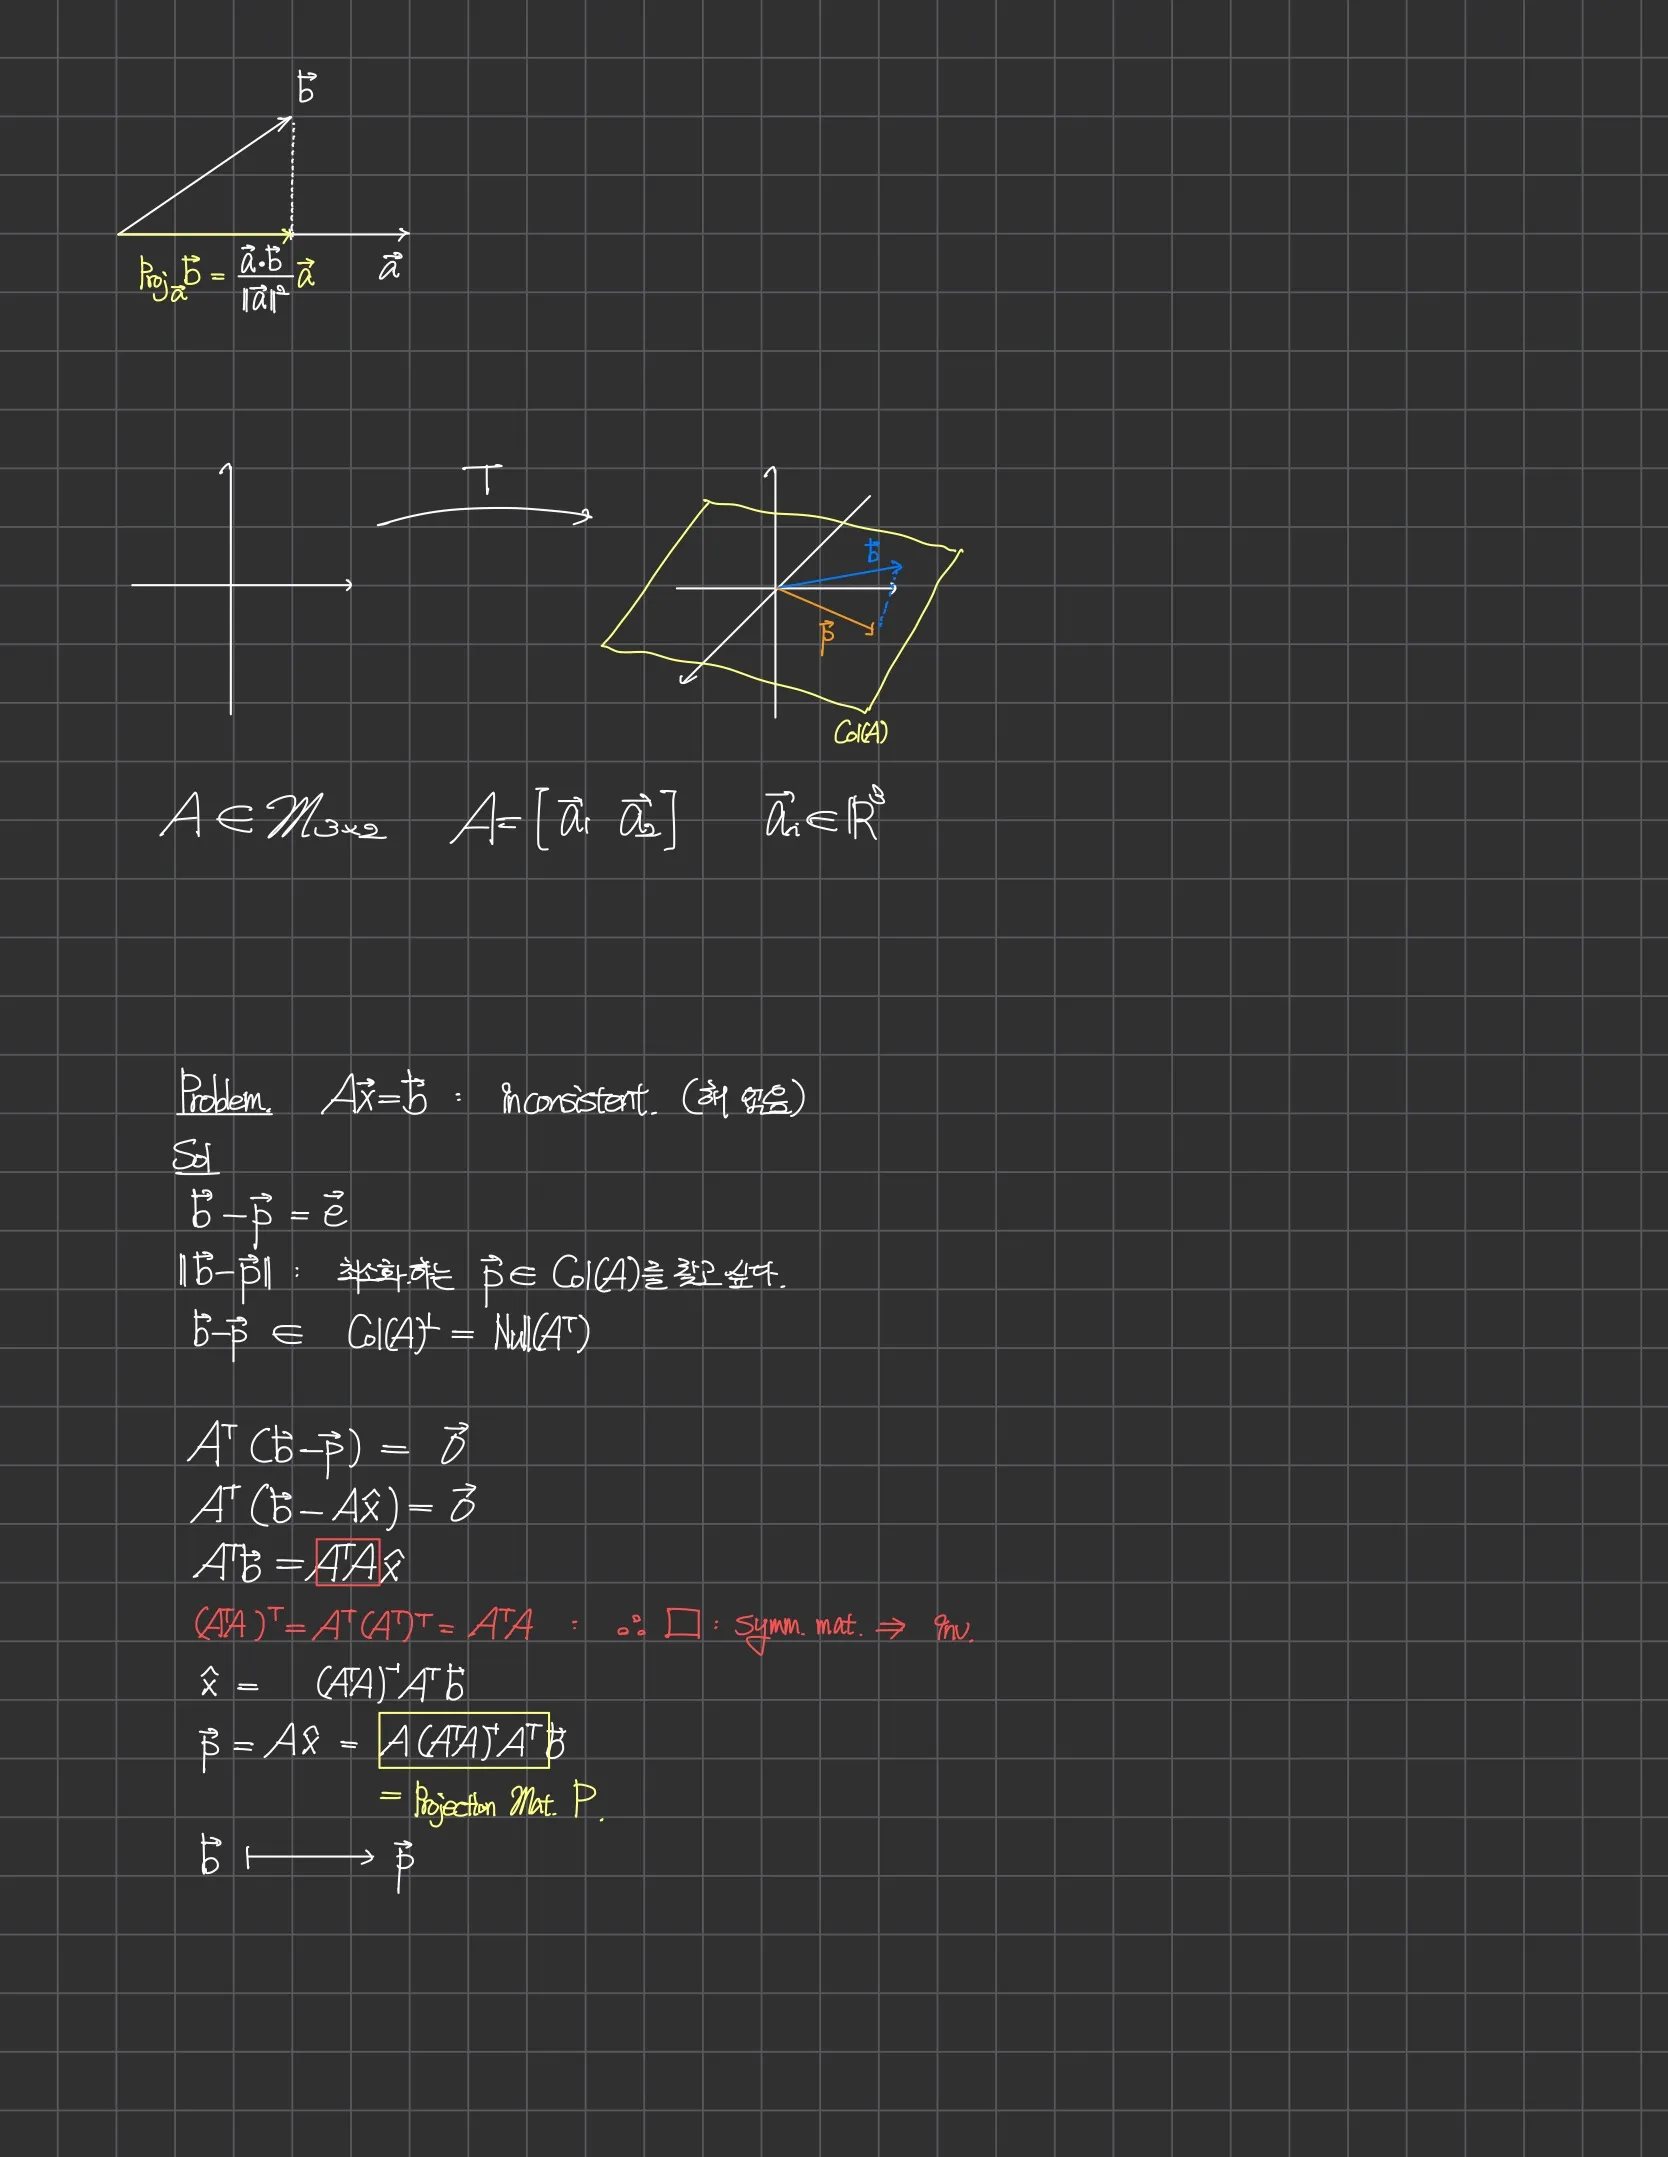 b⃗
Proj_a⃗ b⃗ = (a⃗·b⃗)/‖a⃗‖² a⃗
a⃗
T
b⃗
p⃗
Col(A)
A ∈ M₃ₓ₂ A = [a⃗₁ a⃗₂] a⃗ᵢ ∈ ℝ³
Problem. Ax⃗ = b⃗ : inconsistent. (해 없음)
Sol
b⃗ − p⃗ = e⃗
‖b⃗ − p⃗‖ : 최소화하는 p⃗ ∈ Col(A)를 찾고 싶다.
b⃗ − p⃗ ∈ Col(A)^⊥ = Null(Aᵀ)
Aᵀ(b⃗ − p⃗) = 0⃗
Aᵀ(b⃗ − Ax̂) = 0⃗
Aᵀb⃗ = AᵀA x̂
(AᵀA)ᵀ = Aᵀ(Aᵀ)ᵀ = AᵀA : ∴ □ : symm. mat. ⇒ inv.
x̂ = (AᵀA)⁻¹Aᵀb⃗
p⃗ = Ax̂ = A(AᵀA)⁻¹Aᵀb⃗
= Projection Mat. P.
b⃗ ⟼ p⃗